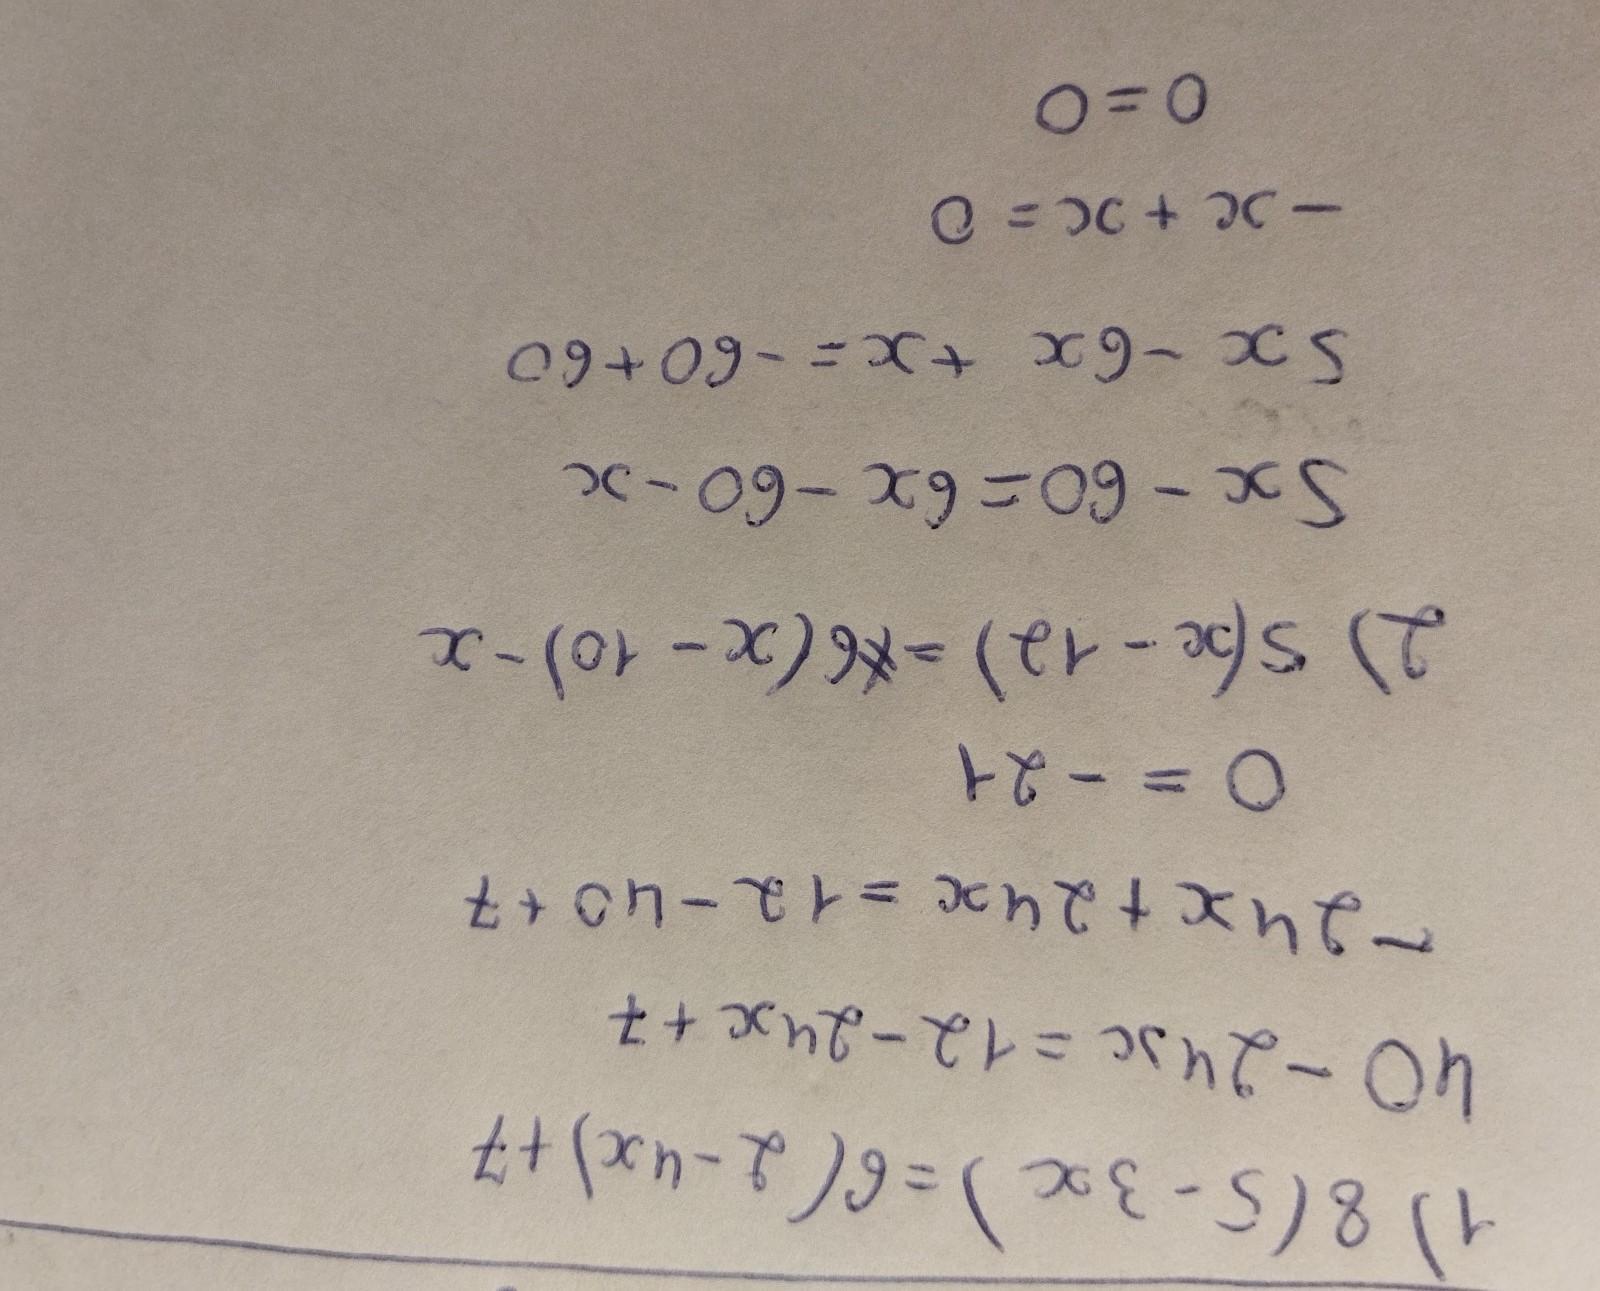 1) 8(5-3x)=6(2-4x)+7
40-24x=12-24x+7
-24x+24x=12-40+7
0=-21
2) 5(x-12)=6(x-10)-x
5x-60=6x-60-x
5x-6x+x=-60+60
-x+x=0
0=0